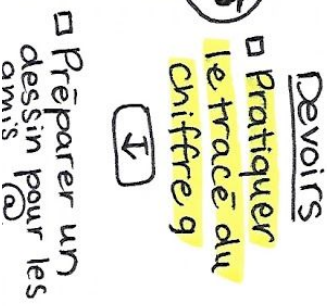 Devoirs
□ Pratiquer
le tracé du
chiffre 9
□ Préparer un
dessin pour les
amis @